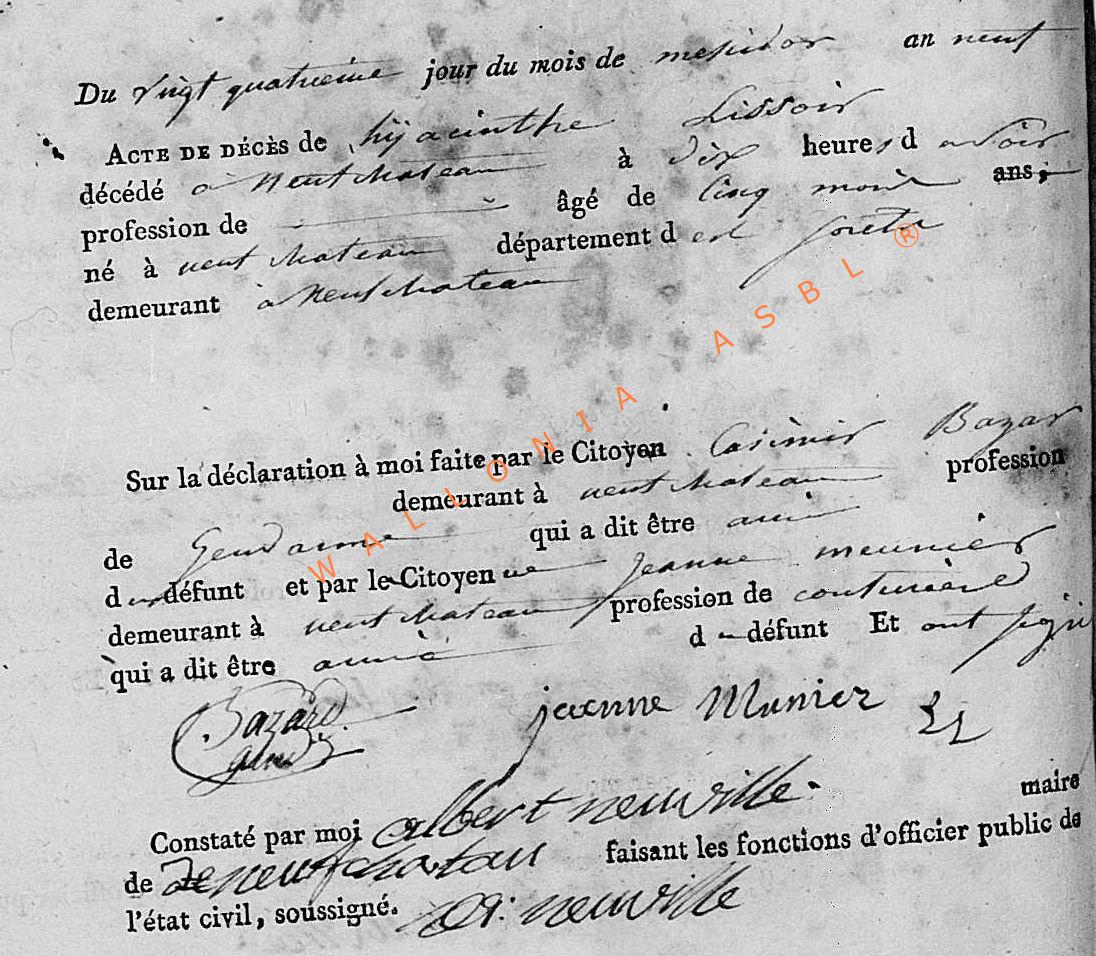 Du vingt quatrieme jour du mois de mesidor an neuf
ACTE DE DÉCÈS de hijacinthe Lissoir
décédé a Neufchateau à dix heures du Soir
profession de âgé de Cinq mois ans;
né à neufchateau département des foret
demeurant à Neufchateau
Sur la déclaration à moi faite par le Citoyen Casimir Bazar
demeurant à neufchateau profession
de Gendarme qui a dit être ami
du défunt et par le Citoyenne Jeanne meunier
demeurant à neufchateau profession de couturière
qui a dit être amie du défunt Et ont signé
Bazard jeanne Munier
gend
Constaté par moi albert neuville maire
de de neufchatau faisant les fonctions d'officier public de
l'état civil, soussigné. A: neuville
WALLONIA ASBL ®